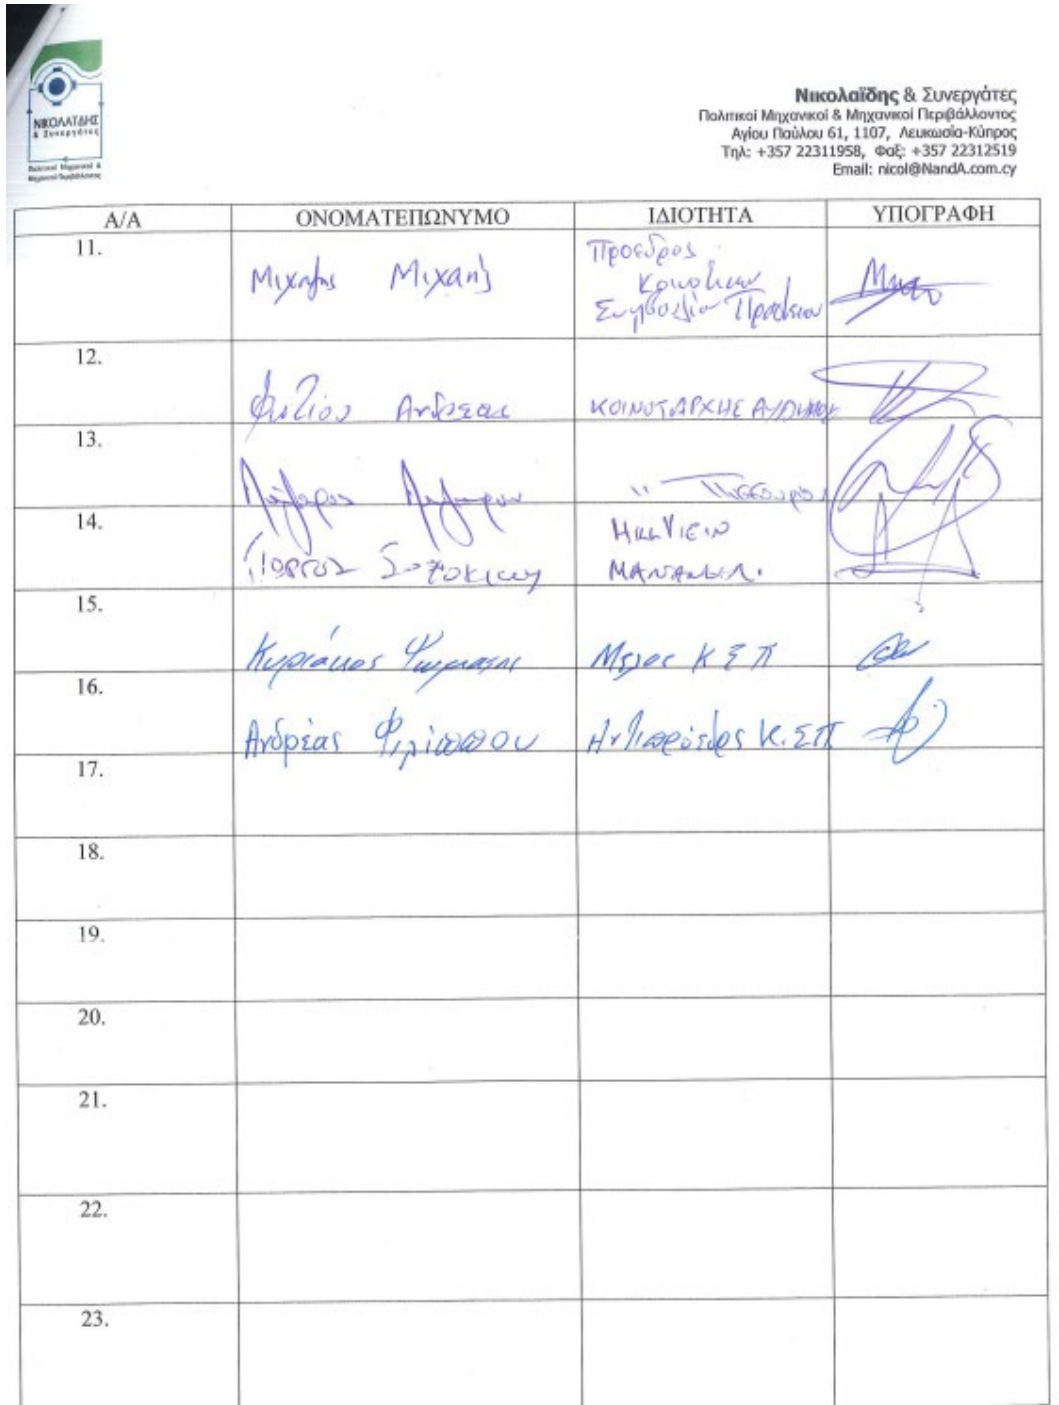 ΝΙΚΟΛΑΪΔΗΣ
& Συνεργάτες
Πολιτικοί Μηχανικοί &
Μηχανικοί Περιβάλλοντος
Νικολαΐδης & Συνεργάτες
Πολιτικοί Μηχανικοί & Μηχανικοί Περιβάλλοντος
Αγίου Παύλου 61, 1107, Λευκωσία-Κύπρος
Τηλ: +357 22311958, Φαξ: +357 22312519
Email: nicol@NandA.com.cy
Α/Α ΟΝΟΜΑΤΕΠΩΝΥΜΟ ΙΔΙΟΤΗΤΑ ΥΠΟΓΡΑΦΗ
11. Μιχαήλ Πρόεδρος
12. Φωτίου Ανδρέας ΚΟΙΝΟΤΑΡΧΗΣ
13. Λάζαρος Λαζάρου "
14.
15. Κυριάκος Μέλος Κ Σ Π
16. Ανδρέας Φιλίππου Αντιπρόεδρος Κ.ΣΠ
17.
18.
19.
20.
21.
22.
23.